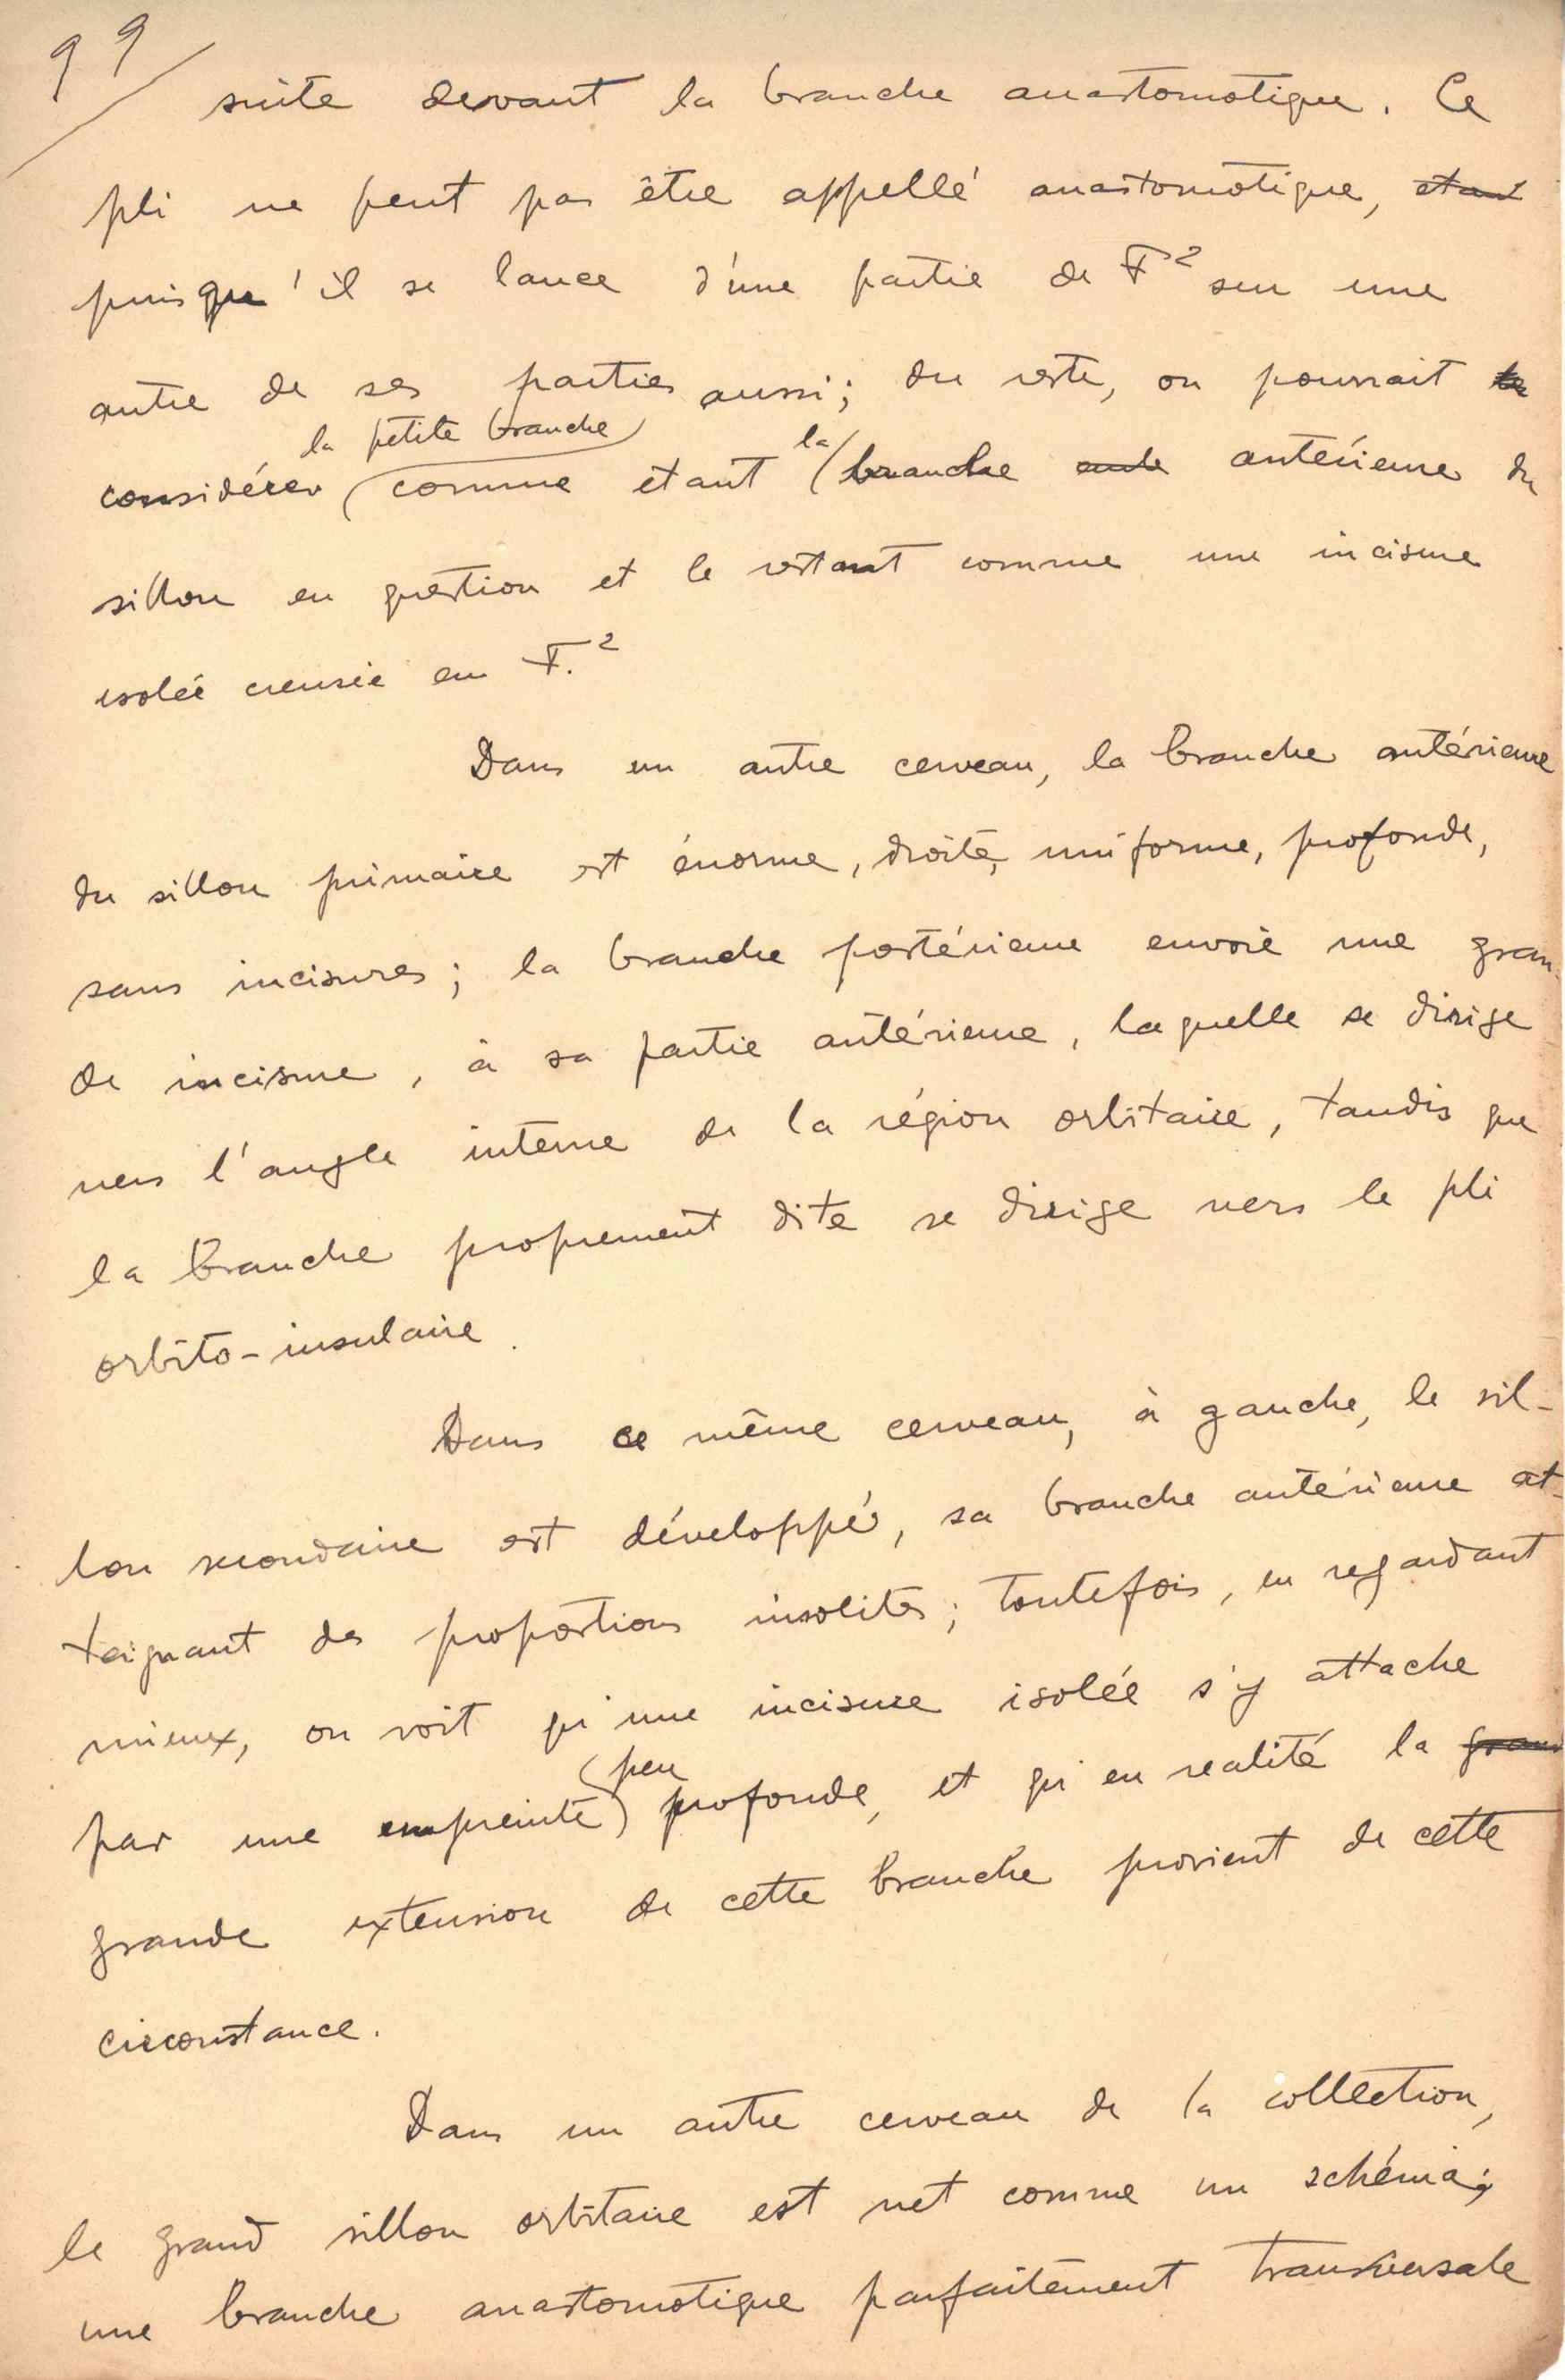 99
suite devant la branche anastomotique. Ce
pli ne peut pas être appellé anastomotique, etant
puisqu'il se lance d'une partie de F² sur une
autre de ses parties aussi; du reste, on pourrait le
la petite branche la
considérer comme etant branche antérieure du
sillon en question et le restant comme une incisure
isolée creusée en F.²
Dans un autre cerveau, la branche antérieure
du sillon primaire est énorme, droite, uniforme, profonde,
sans incisures; la branche postérieure envoie une gran-
de incisure, à sa partie antérieure, laquelle se dirige
vers l'angle interne de la région orbitaire, tandis que
la branche proprement dite se dirige vers le pli
orbito-insulaire.
Dans ce même cerveau, à gauche, le sil-
lon secondaire est développé, sa branche antérieure at-
teignant des proportions insolites; toutefois, en regardant
mieux, on voit qu'une incisure isolée s'y attache
peu
par une empreinte profonde, et qu'en realité la gran
grande extension de cette branche provient de cette
circonstance.
Dans un autre cerveau de la collection,
le grand sillon orbitaire est net comme un schéma;
une branche anastomotique parfaitement transversale